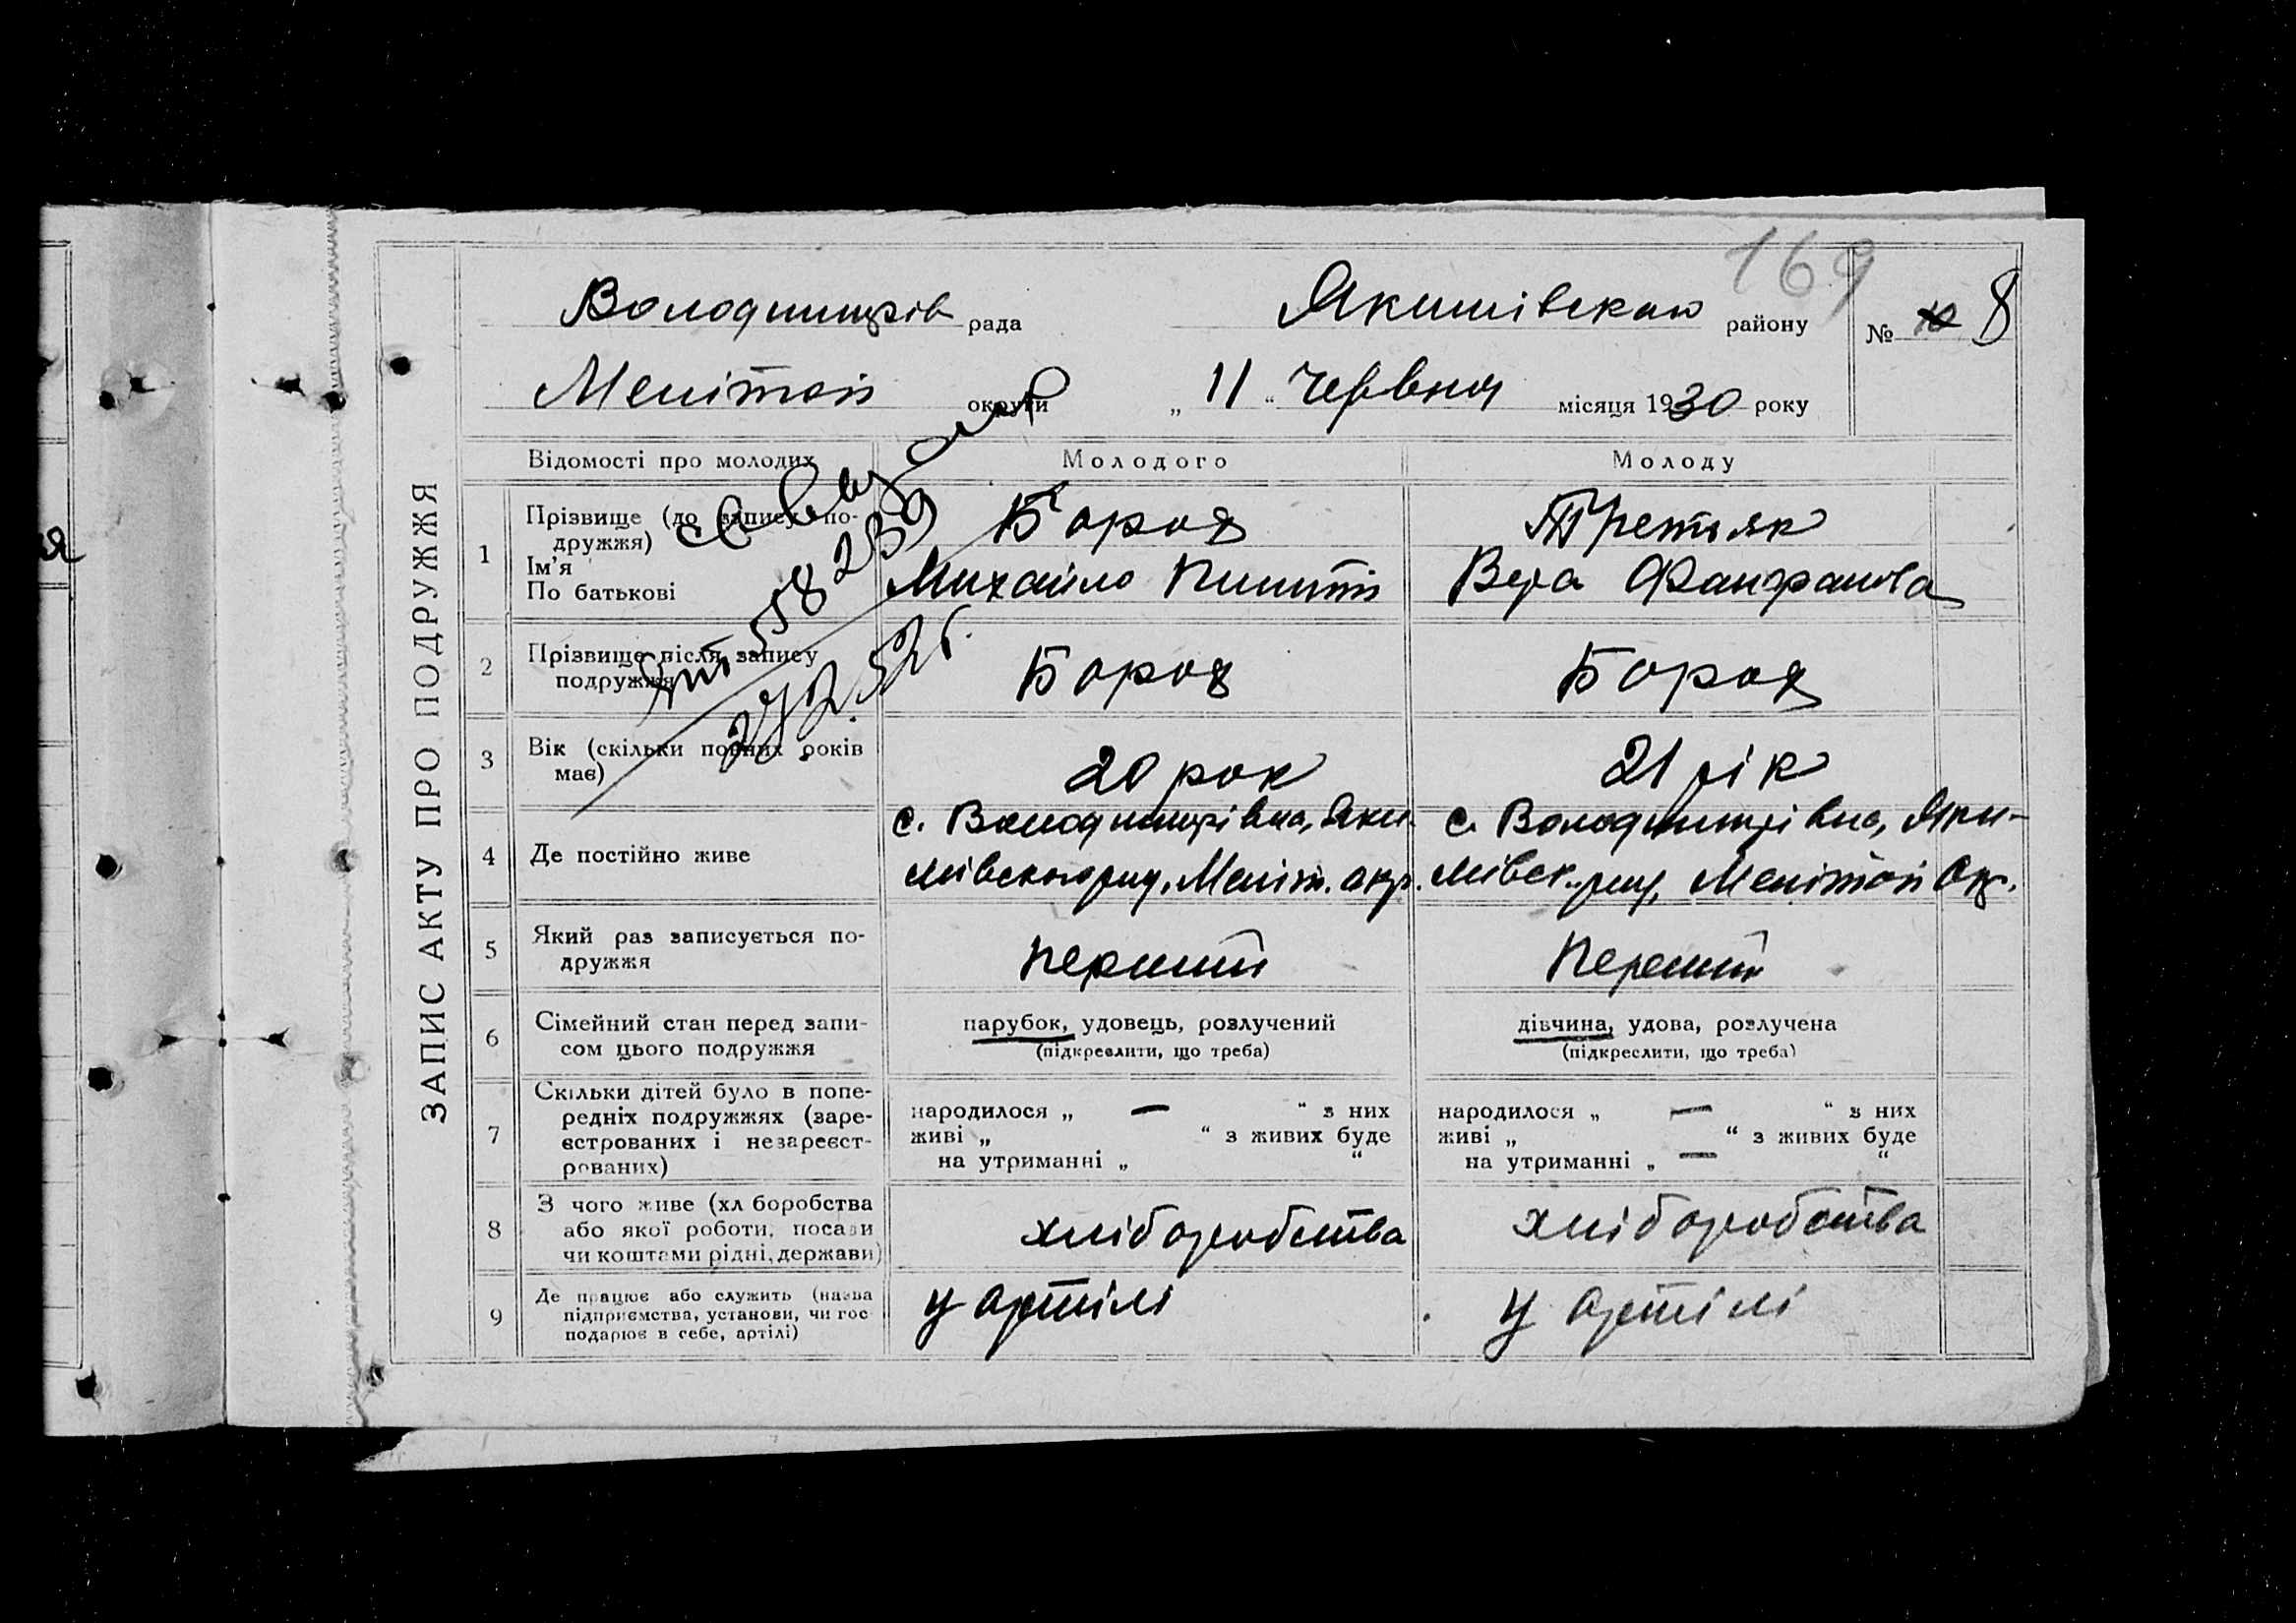 169
Володимирів рада Якимівского району № 8
Меліто́п округи „ 11 “ Червня місяця 1930 року
ЗАПИС АКТУ ПРО ПОДРУЖЖЯ
Відомості про молодих Молодого Молоду
1 Прізвище (до запису по-
дружжя)
Ім’я
По батькові
Бороз
Михайло
Третьяк
Вера
2 Прізвище після запису
подружжя
Бороз
Бороз
27/2.52 г.
3 Вік (скільки повних років
має)
20 рок
21 рік
4 Де постійно живе
с. Володимирівка, Яки-
мівского рну, Меліт. окр.
с. Володимирівка, Яки-
мівск. рну, Мелітоп Окр.
5 Який раз записується по-
дружжя
перший
Перший
6 Сімейний стан перед запи-
сом цього подружжя
парубок, удовець, розлучений
(підкреслити, що треба)
дівчина, удова, розлучена
(підкреслити, що треба)
7 Скільки дітей було в попе-
редніх подружжях (заре-
єстрованих і незареєст-
рованих)
народилося „ — “ з них
живі „ “ з живих буде
на утриманні „ “
народилося „ — “ з них
живі „ “ з живих буде
на утриманні „ — “
8 З чого живе (хліборобства
або якої роботи, посади
чи коштами рідні, держави)
хліборобства
хліборобства
9 Де працює або служить (назва
підприємства, установи, чи гос
подарює в себе, артілі)
у артілі
у артілі